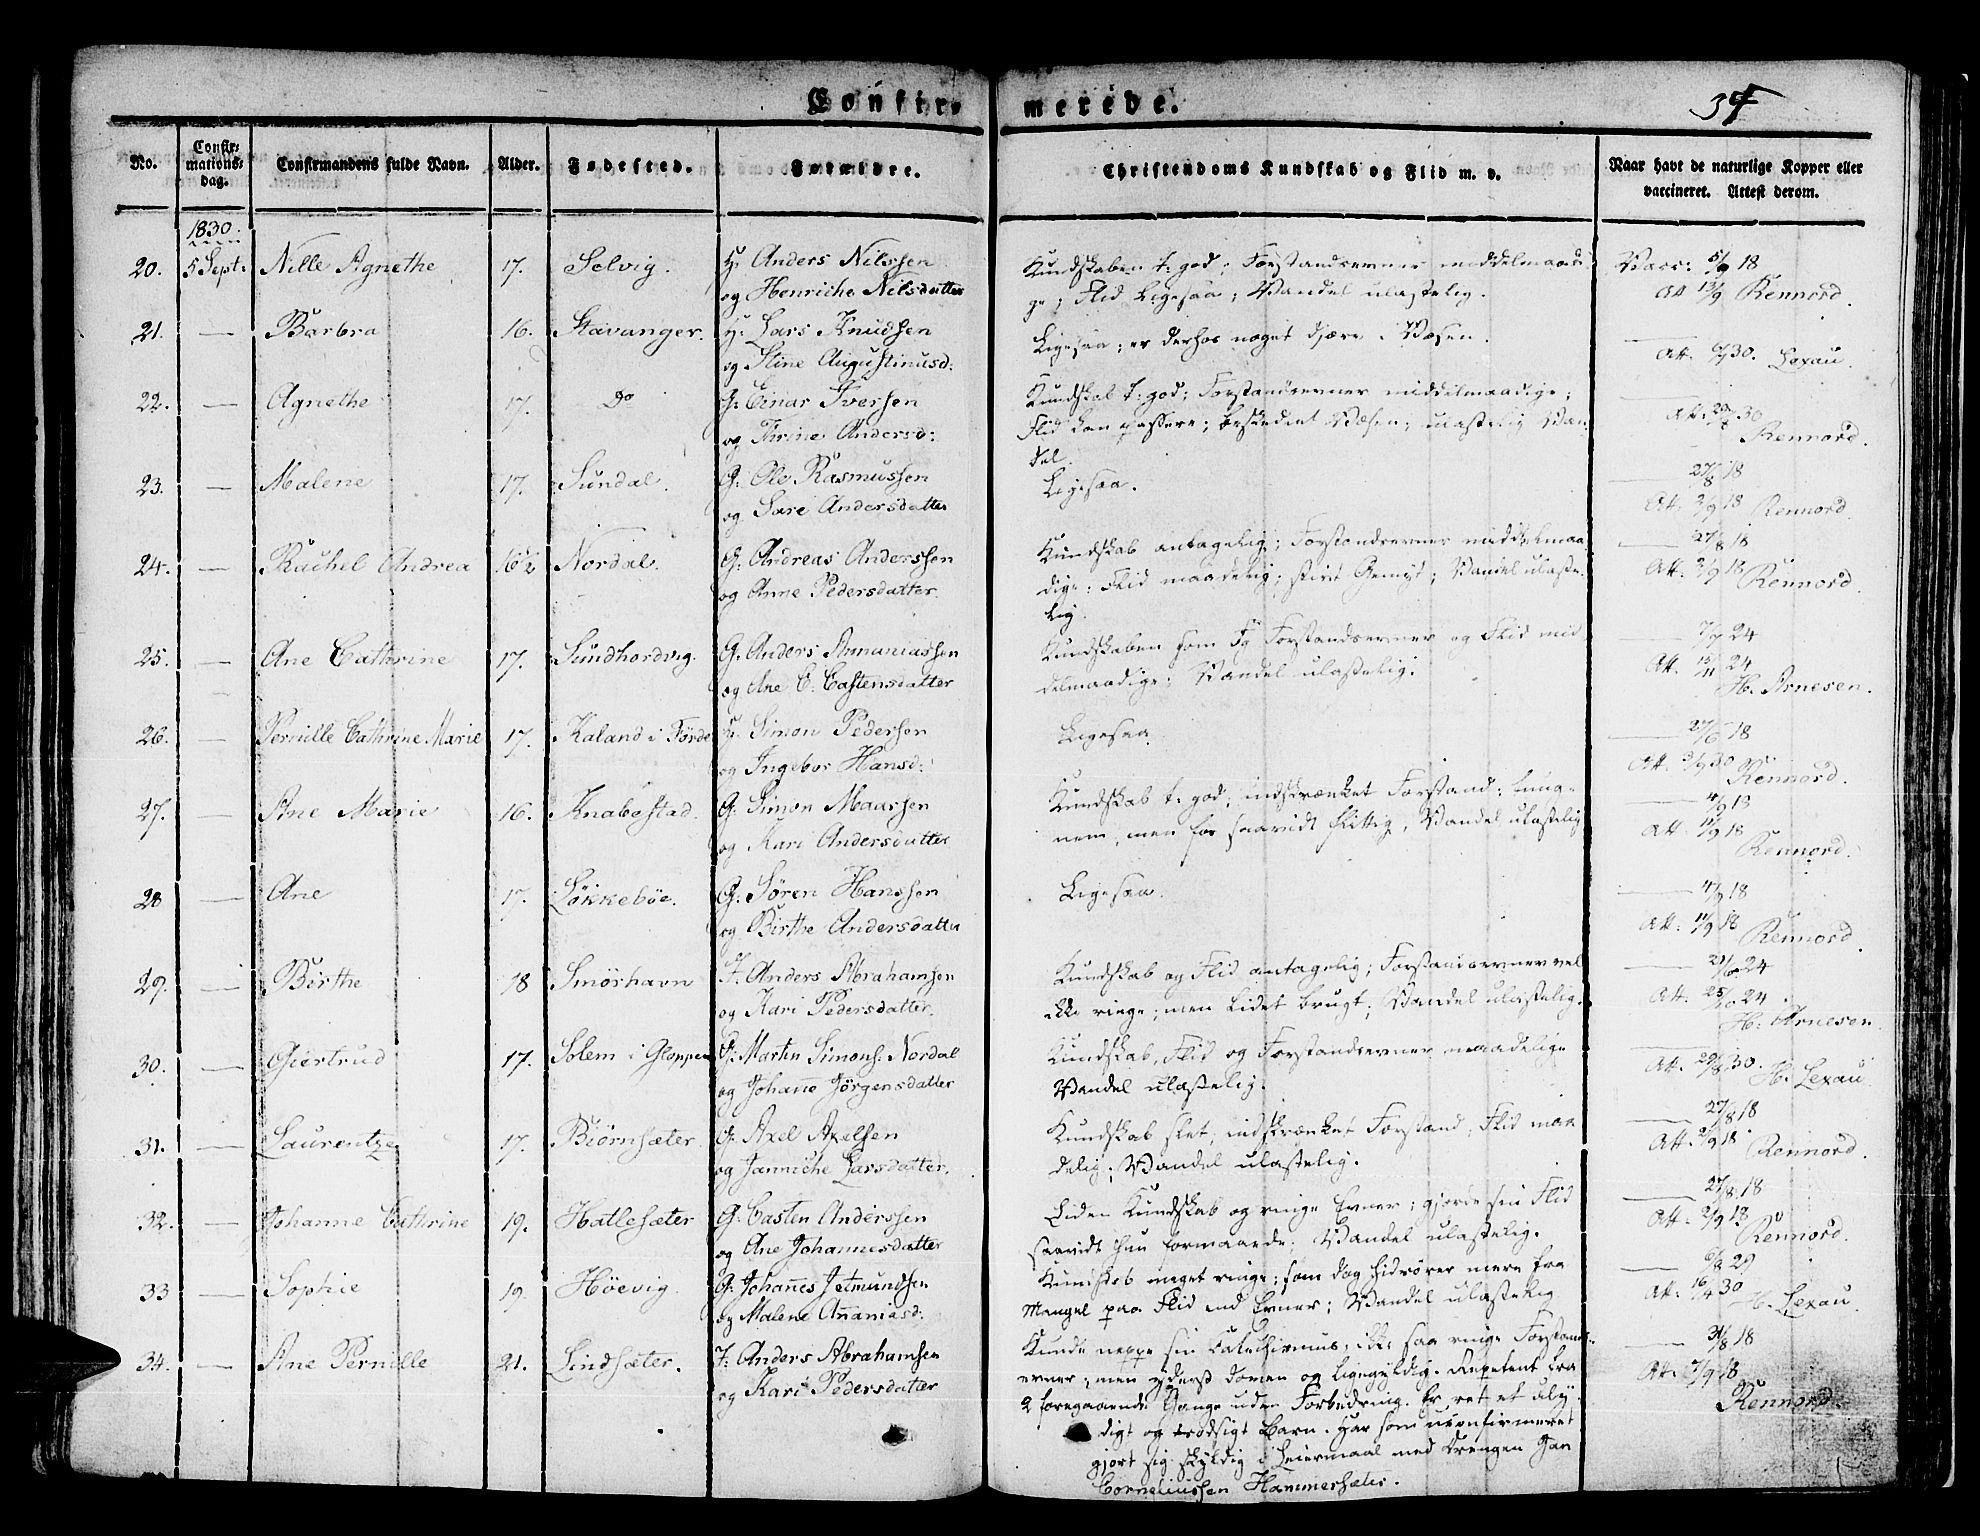 Confir-merede.
34
No.
Confir-
mations-
dag.
Confirmandens fulde Navn.
Alder.
Fødested.
Forældre.
Christendoms Kundskab og Flid m. v.
Naar havt de naturlige Kopper eller
vaccineret. Attest derom.
1830.
20. 5 Sept: Nille Agnethe 17. Selvig. Anders Nilssen
og Henriche Nilsdatter
Kundskaben t. god; Forstandsevner middelmaadi-
ge; Flid Ligesaa; Vandel ulastelig.
Vacc: 5/9 18
Att 13/9 Rennord.
21. — Barbra 16. Stavanger. Lars Knudsen
og Stine Augustinusd:
Ligesaa; er derhos noget djærv i Væsen.
Att. 30. Lexau.
22. — Agnethe 17. Do G: Einar Iversen
og Thrine Andersd:
Kundskab t. god; Forstandsevner middelmaadige;
Flid kan passere; beskedent Væsen; ulastelig Van-
del.
Att. 30 Rennord.
23. — Malene 17. Sundal. G: Ole Rasmussen
og Sare Andersdatter
Ligesaa.
27/8 18
Att. 2/9 18 Rennord.
24. — Rachel Andrea 16½ Nordal. G: Andreas Anderssen
og Anne Pedersdatter.
Kundskab antagelig; Forstandsevner middelmaa-
dige; Flid maadelig; stivt Gemyt; Vandel ulaste-
lig.
27/8 18
Att. 2/9 18 Rennord.
25. — Ane Cathrine 17. Sundhordvig. G: Anders Annaniassen
og Ane C. Castensdatter
Kundskaben som Forstandsevner og Flid mid-
delmaadige; Vandel ulastelig.
7/7 24
Att. 15/11 24
H. Arnesen.
26. — Pernille Cathrine Marie 17. Kaland i Förde Simon Pedersen
og Ingebor Hansd:
Ligesaa.
27/6 18
Att. 30 Rennord.
27. — Ane Marie 16. Knabestad. G: Simon Maassen
og Kari Andersdatter
Kundskab t. god; indskrænket Forstand; Lang-
nem, men for saavidt flittig, Vandel ulastelig
4/9 18
Att. 11/9 18
Rennord.
28 — Ane 17. Løkkebøe. G: Sören Hanssen
og Birthe Andersdatter
Ligesaa.
4/9 18
Att. 11/9 18
Rennord.
29. — Birthe 18 Smörhavn F: Anders Abrahamsen
og Kari Pedersdatter.
Kundskab og Flid antagelig; Forstandsevner vel
ikke ringe; men Lidet brugt; Vandel ulastelig.
24
Att. 24
H. Arnesen
30. — Giertrud 17. Solem i Gloppen G: Martin Simons: Nordal
og Johane Jörgensdatter
Kundskab, Flid og Forstandsevner maadelige
Vandel ulastelig.
Att. 29/8 30.
H. Lexau
31. — Laurentze 17. Biörnsæter. G: Axel Axelsen
og Janniche Larsdatter.
Kundskab slet, indskrænket Forstand; Flid maa-
delig; Vandel ulastelig.
27/8 18
Att. 2/9 18.
Rennord.
32. — Johanne Cathrine 19. Hatlesæter G: Casten Anderssen
og Ane Johannesdatter
Liden Kundskab og ringe Evner; gjorde sin Flid
saavidt hun formaaede; Vandel ulastelig.
27/8 18
Att. 2/9 18
Rennord.
33 — Sophie 19. Höevig. G: Johanes Jetmundsen
og Malene Ananiasd:
Kundskab meget ringe; som dog hidrører mere fra
Mangel paa Flid end Evner; Vandel ulastelig
6/8 29
Att. 16/4 30
H. Lexau.
34. — Ane Pernille 21. Lindsæter. F: Anders Abrahamsen
og Kari Pedersdatter
Kunde neppe sin Catechismus; ikke saa ringe Forstands-
evner; men yderst doven og ligegyldig. Repetent fra
2 foregaaende Gange uden Forbedring. Er ret et uly-
digt og trodsigt Barn. Har som uconfirmeret
gjort sig skyldig i Leiermaal med Drengen Jan
Corneliussen Hammersæter.
31/8 18
Att. 7/9 18
Rennord.